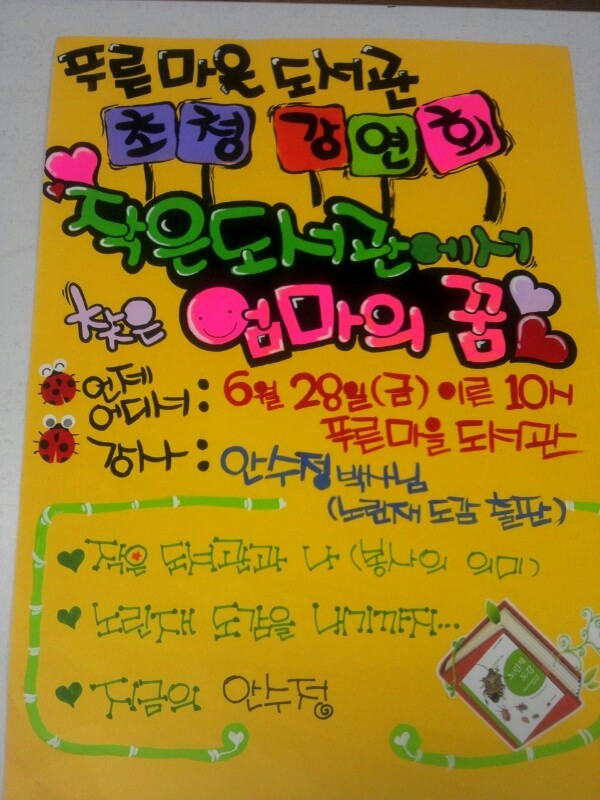 푸른마을 도서관
초청 강연회
작은도서관에서
찾은 엄마의 꿈
언제 : 6월 28일(금) 이른 10시
어디서 푸른마을 도서관
강사 : 안수정 박사님
(노린재 도감 출판)
작은 도서관과 나 (봉사의 의미)
노린재 도감을 내기까지...
지금의 안수정
노린재
도감